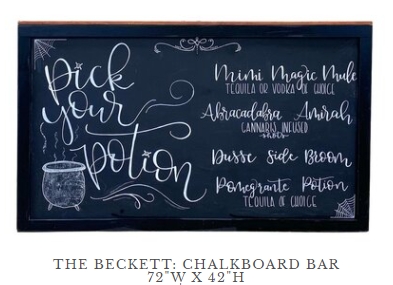 Pick
your
Potion
Mimi Magic Mule
TEQUILA OR VODKA OF CHOICE
Abracadabra Amirah
CANNABIS INFUSED
Dusse Side Broom
Pomegrante Potion
TEQUILA OF CHOICE
THE BECKETT: CHALKBOARD BAR
72"W X 42"H